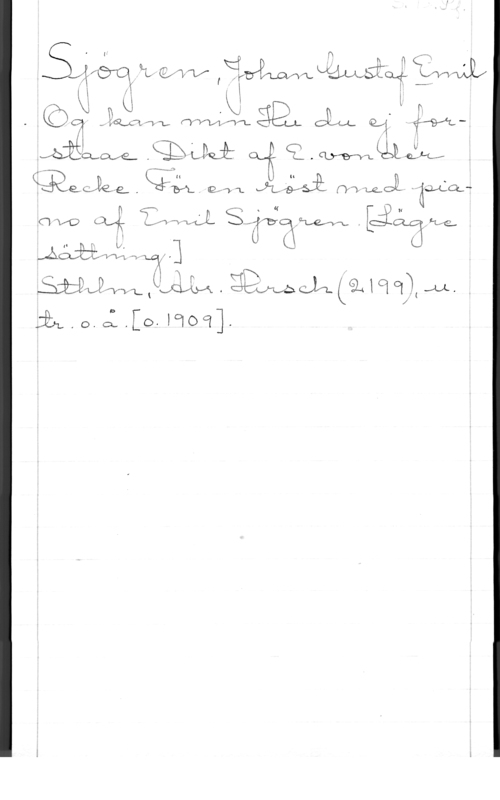 Sjögren, Johan Gustaf Emil
Og kan min Hu du ej for-
staae. Dikt af E. von der
Recke. För en röst med pia-
no af Emil Sjögren. [Lägre
sättning.]
Sthlm, Abr. Hirsch (2199), u.
tr. o. å. [o. 1909].